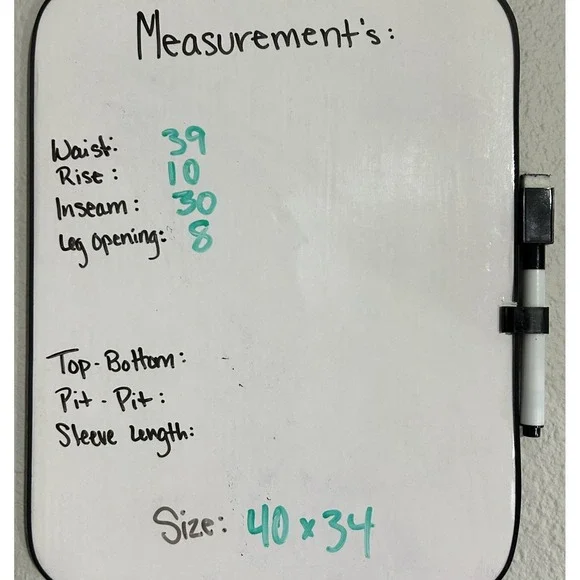 Measurement's:
Waist: 39
Rise: 10
Inseam: 30
Leg Opening: 8
Top-Bottom:
Pit-Pit:
Sleeve Length:
Size: 40 x 34